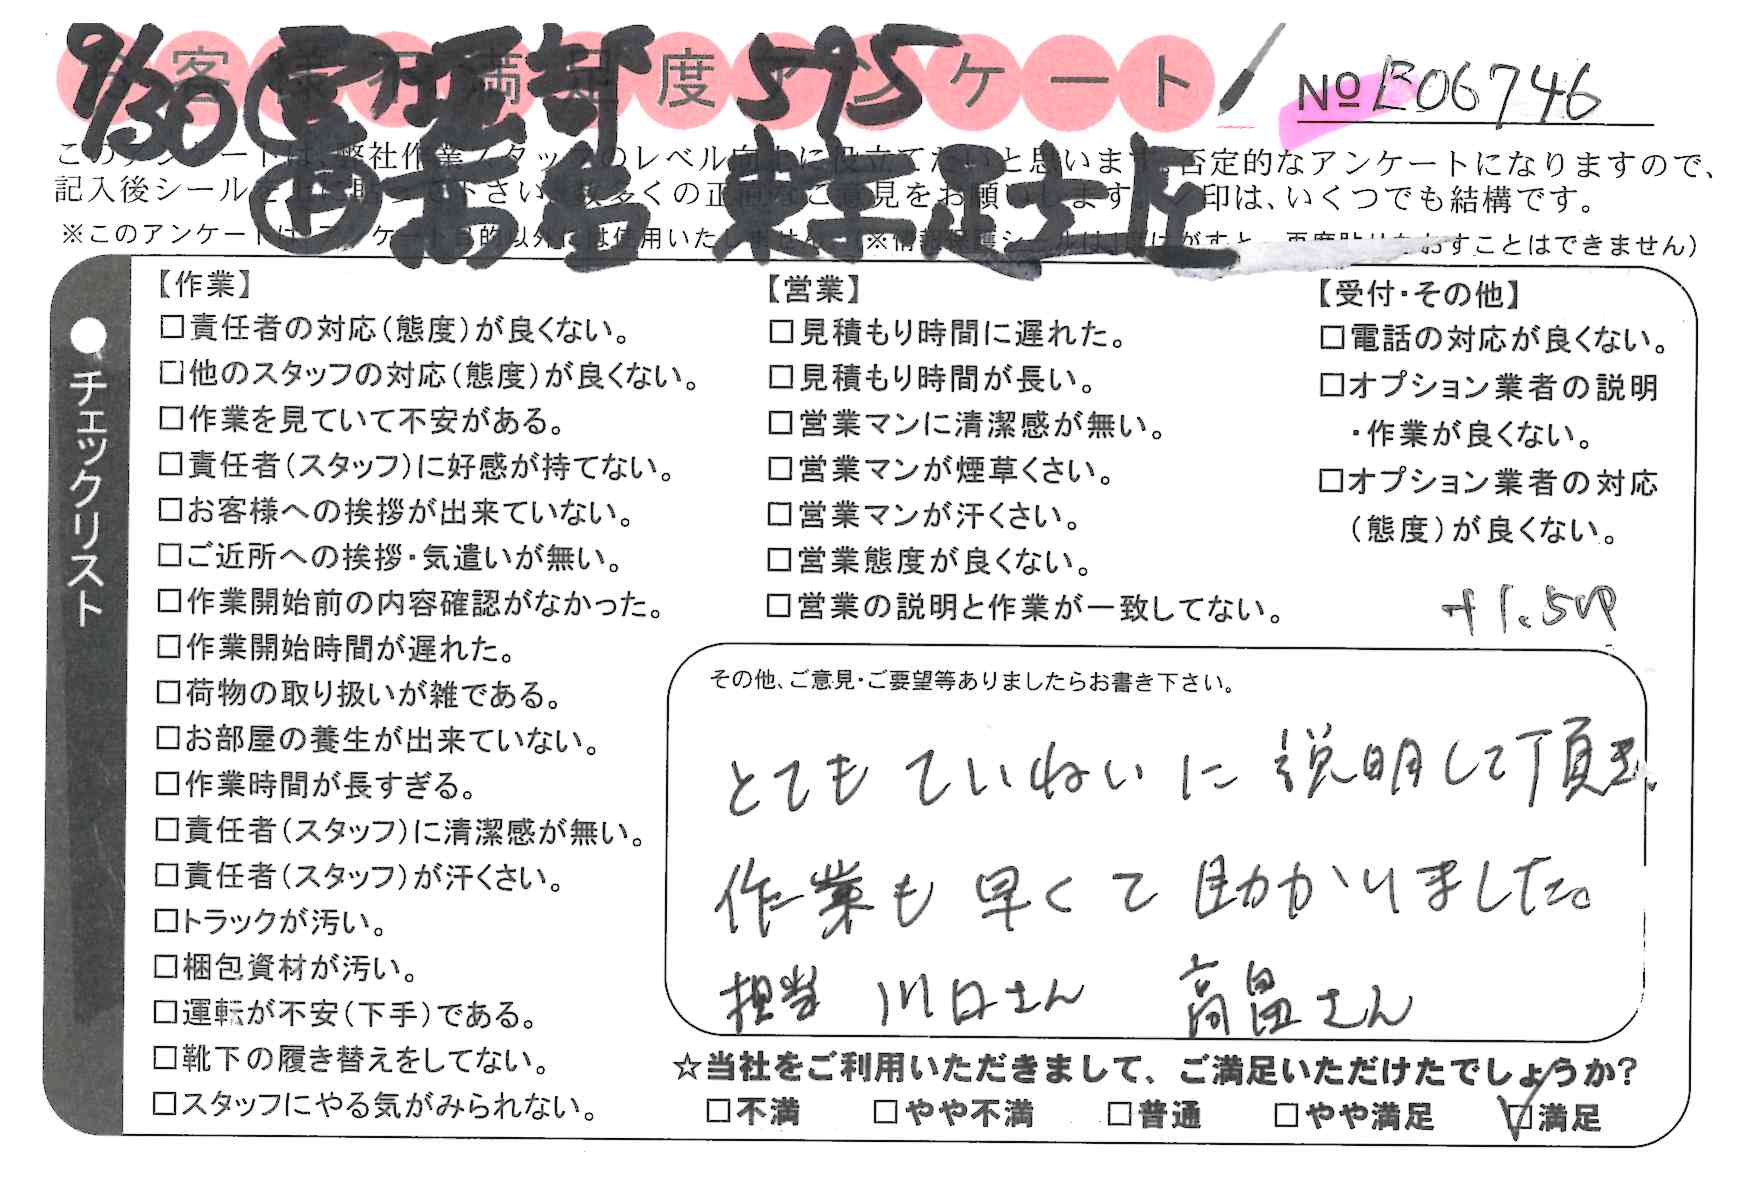 9/30 595
お客様不満足度アンケート
No B06746
このアンケートは、弊社作業スタッフのレベル向上に役立てたいと思います。否定的なアンケートになりますので、
記入後シールを上に貼って下さい。数多くの正直なご意見をお願いします。✓印は、いくつでも結構です。
●チェックリスト
【作業】
□責任者の対応（態度）が良くない。
□他のスタッフの対応（態度）が良くない。
□作業を見ていて不安がある。
□責任者（スタッフ）に好感が持てない。
□お客様への挨拶が出来ていない。
□ご近所への挨拶・気遣いが無い。
□作業開始前の内容確認がなかった。
□作業開始時間が遅れた。
□荷物の取り扱いが雑である。
□お部屋の養生が出来ていない。
□作業時間が長すぎる。
□責任者（スタッフ）に清潔感が無い。
□責任者（スタッフ）が汗くさい。
□トラックが汚い。
□梱包資材が汚い。
□運転が不安（下手）である。
□靴下の履き替えをしてない。
□スタッフにやる気がみられない。
【営業】
□見積もり時間に遅れた。
□見積もり時間が長い。
□営業マンに清潔感が無い。
□営業マンが煙草くさい。
□営業マンが汗くさい。
□営業態度が良くない。
□営業の説明と作業が一致してない。
【受付・その他】
□電話の対応が良くない。
□オプション業者の説明
・作業が良くない。
□オプション業者の対応
（態度）が良くない。
+1.5UP
その他、ご意見・ご要望等ありましたらお書き下さい。
とても ていねいに 説明して頂き、
作業も 早くて 助かりました。
担当 川口さん 高畠さん
☆当社をご利用いただきまして、ご満足いただけたでしょうか？
□不満 □やや不満 □普通 □やや満足 ☑満足